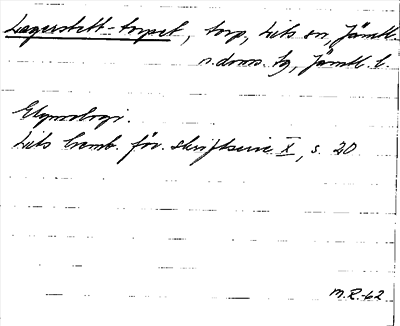 Lagerstett-torpet, torp, Lits sn, Jämtl.
n. doms. tg, Jämtl. l.
Etymologi.
Lits hemb. för. skriftserie X, s. 20
M.R.-62